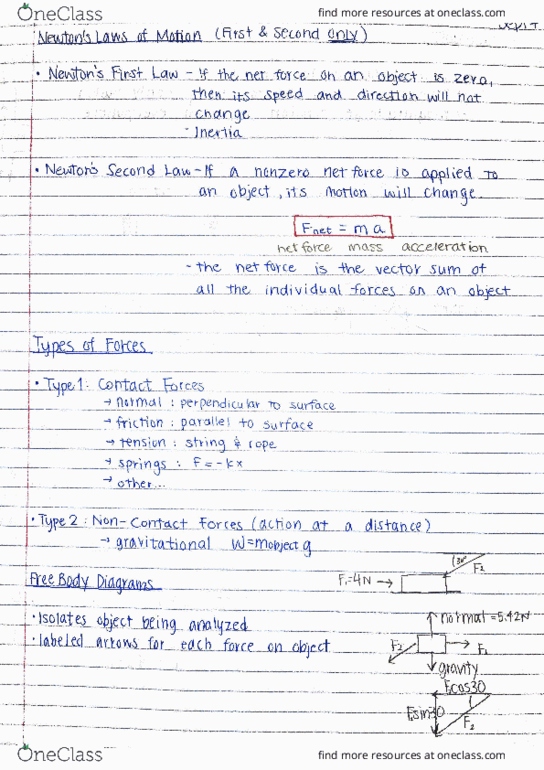 OneClass
find more resources at oneclass.com
Newton's Laws of Motion (First & Second only)
• Newton's First Law - If the net force on an object is zero,
then its speed and direction will not
change
- Inertia
• Newton's Second Law - If a nonzero net force is applied to
an object, its motion will change.
Fnet = ma
net force mass acceleration
- the net force is the vector sum of
all the individual forces on an object
Types of Forces
• Type 1: Contact Forces
→ normal : perpendicular to surface
→ friction : parallel to surface
→ tension : string & rope
→ springs : F = -kx
→ other...
• Type 2 : Non-Contact Forces (action at a distance)
→ gravitational W=mobject g
Free Body Diagrams
F₁=4N →
30°
F₂
• Isolates object being analyzed
• labeled arrows for each force on object
normal = 5.42N
F₂
F₁
gravity
F₂cos30
F₂sin30
F₂
OneClass
find more resources at oneclass.com